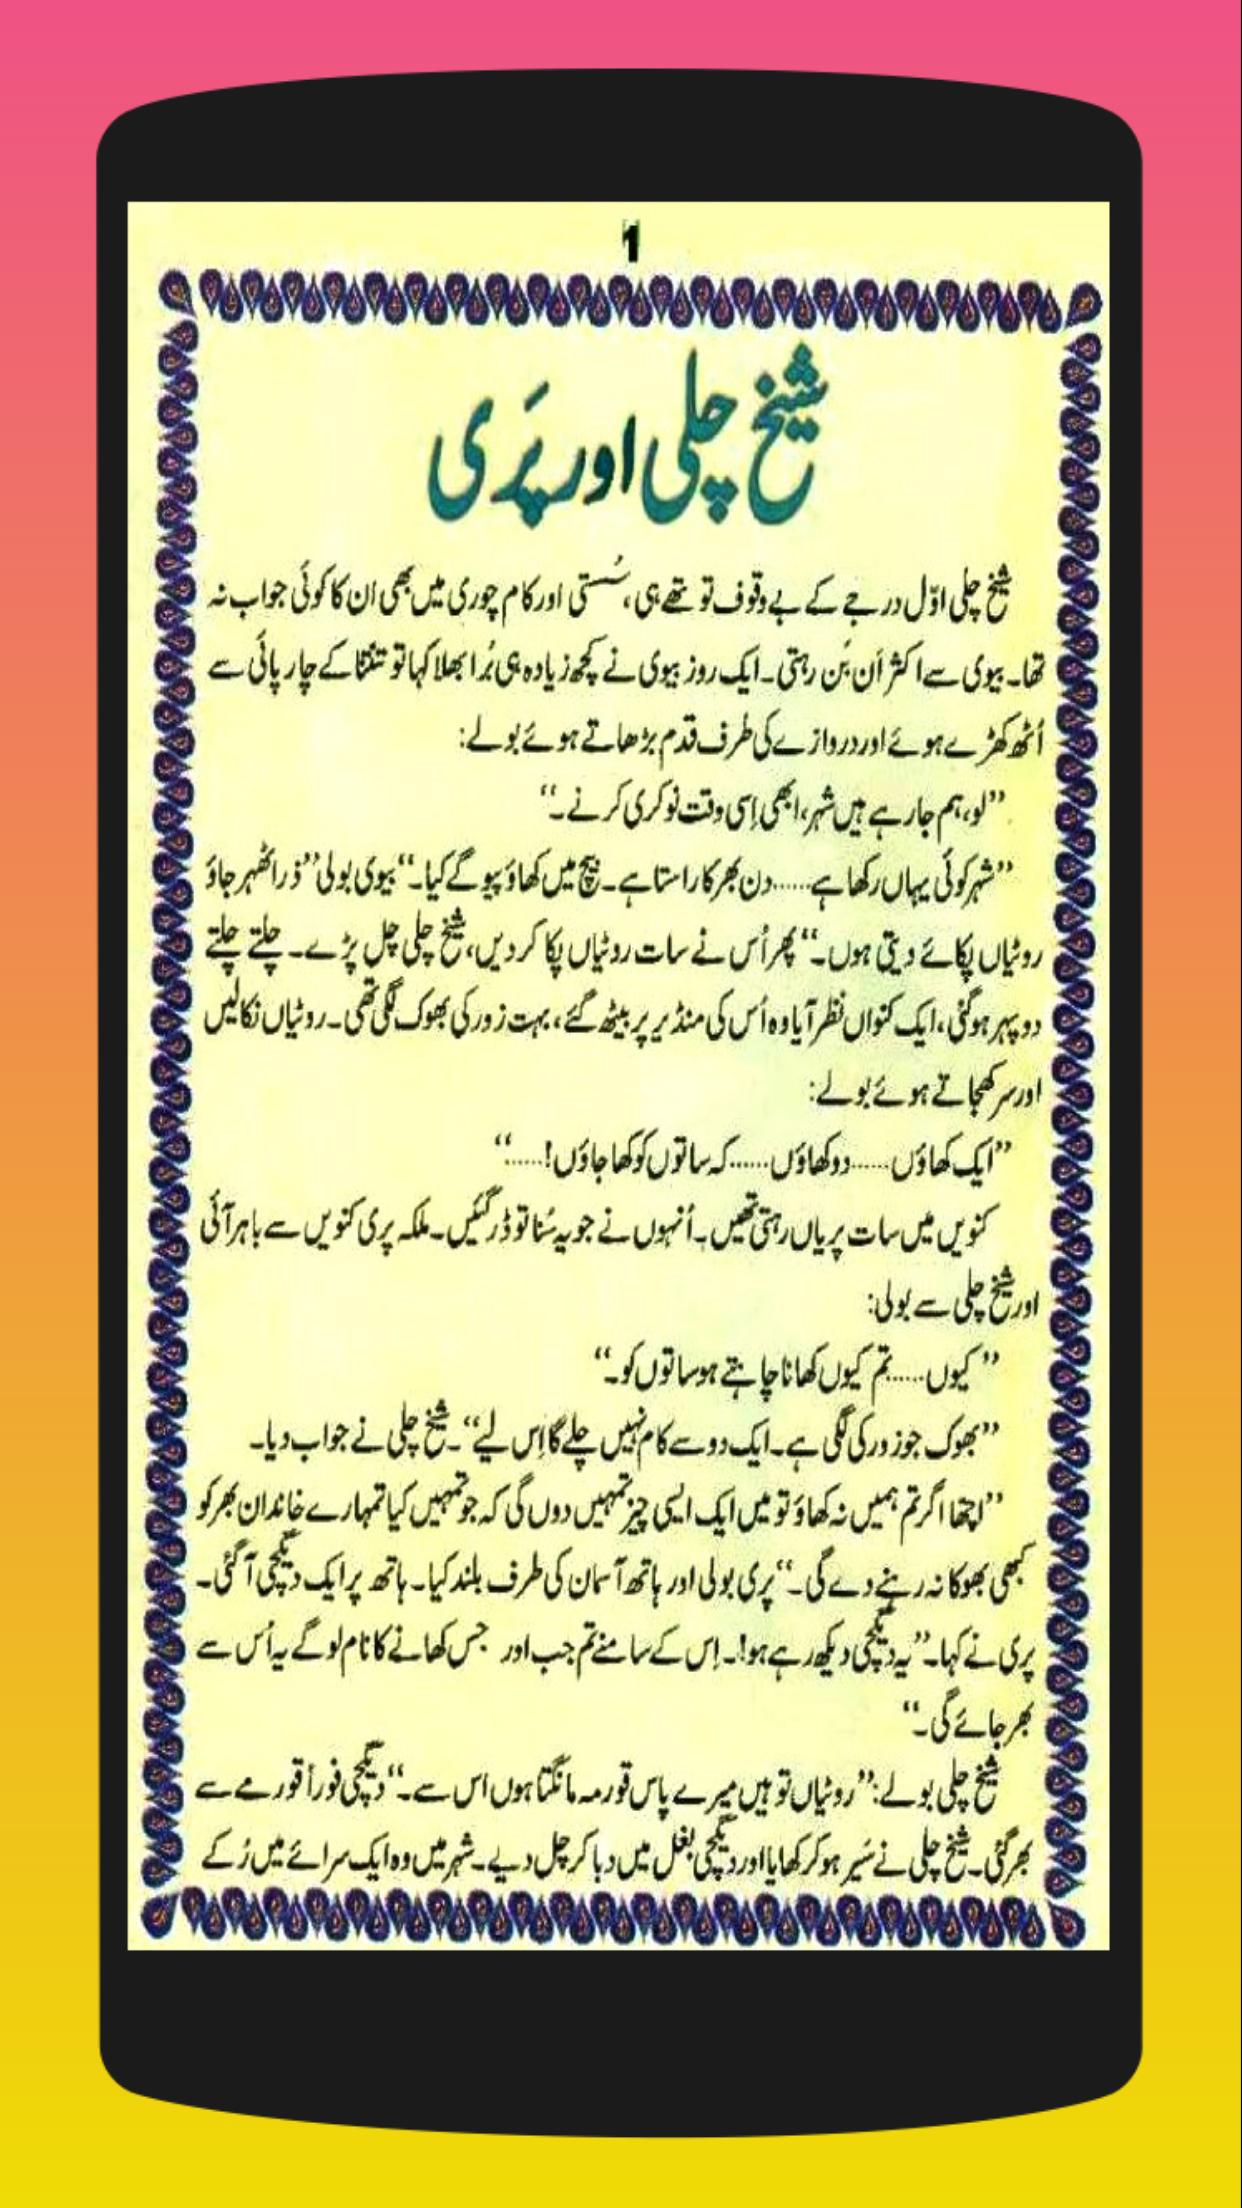 1
شیخ چلی اور پَری
شیخ چلی اوّل درجے کے بے وقوف تو تھے ہی، سُستی اور کام چوری میں بھی ان کا کوئی جواب نہ
تھا۔ بیوی سے اکثر اَن بَن رہتی۔ ایک روز بیوی نے کچھ زیادہ ہی بُرا بھلا کہا تو تنتنا کے چارپائی سے
اُٹھ کھڑے ہوئے اور دروازے کی طرف قدم بڑھاتے ہوئے بولے:
”لو، ہم جا رہے ہیں شہر، ابھی اِسی وقت نوکری کرنے۔“
”شہر کوئی یہاں رکھا ہے......دن بھر کا راستا ہے۔ بیچ میں کھاؤ پیو گے کیا۔“ بیوی بولی ”ذرا ٹھہر جاؤ
روٹیاں پکائے دیتی ہوں۔“ پھر اُس نے سات روٹیاں پکا کر دیں، شیخ چلی چل پڑے۔ چلتے چلتے
دوپہر ہو گئی، ایک کنواں نظر آیا وہ اُس کی منڈیر پر بیٹھ گئے، بہت زور کی بھوک لگی تھی۔ روٹیاں نکالیں
اور سر کھجاتے ہوئے بولے:
”ایک کھاؤں......دو کھاؤں......کہ ساتوں کو کھا جاؤں!.....“
کنویں میں سات پریاں رہتی تھیں۔ اُنہوں نے جو یہ سُنا تو ڈر گئیں۔ ملکہ پری کنویں سے باہر آئی
اور شیخ چلی سے بولی:
”کیوں......تم کیوں کھانا چاہتے ہو ساتوں کو۔“
”بھوک جو زور کی لگی ہے۔ ایک دو سے کام نہیں چلے گا اِس لیے“۔ شیخ چلی نے جواب دیا۔
”اچھا اگر تم ہمیں نہ کھاؤ تو میں ایک ایسی چیز تمہیں دوں گی کہ جو تمہیں کیا تمہارے خاندان بھر کو
کبھی بھوکا نہ رہنے دے گی۔“ پری بولی اور ہاتھ آسمان کی طرف بلند کیا۔ ہاتھ پر ایک دیگچی آ گئی۔
پری نے کہا۔ ”یہ دیگچی دیکھ رہے ہو!۔ اِس کے سامنے تم جب اور جس کھانے کا نام لو گے یہ اُس سے
بھر جائے گی۔“
شیخ چلی بولے: ”روٹیاں تو ہیں میرے پاس قورمہ مانگتا ہوں اس سے۔“ دیگچی فوراً قورمے سے
بھر گئی۔ شیخ چلی نے سَیر ہو کر کھایا اور دیگچی بغل میں دبا کر چل دیے۔ شہر میں وہ ایک سرائے میں رُکے